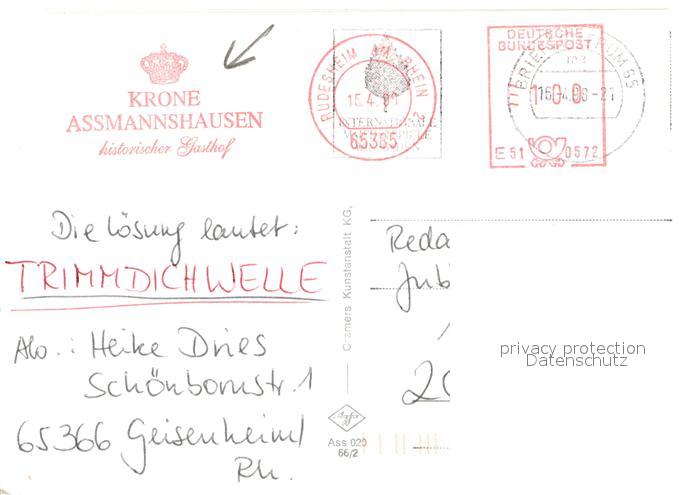 KRONE
ASSMANNSHAUSEN
historischer Gasthof
RÜDESHEIM AM RHEIN 2
15.4.98
65385
INTERNATIONALE
DEUTSCHE
BUNDESPOST
100
E51 0572
BRIEFZENTRUM 65
15.4.98-21
Die Lösung lautet:
TRIMMDICHWELLE
Abs.: Heike Dries
Schönbornstr. 1
65366 Geisenheim/
Rh.
Cramers Kunstanstalt KG,
Agfa
Ass 020
66/2
Reda
Jub
20
privacy protection
Datenschutz